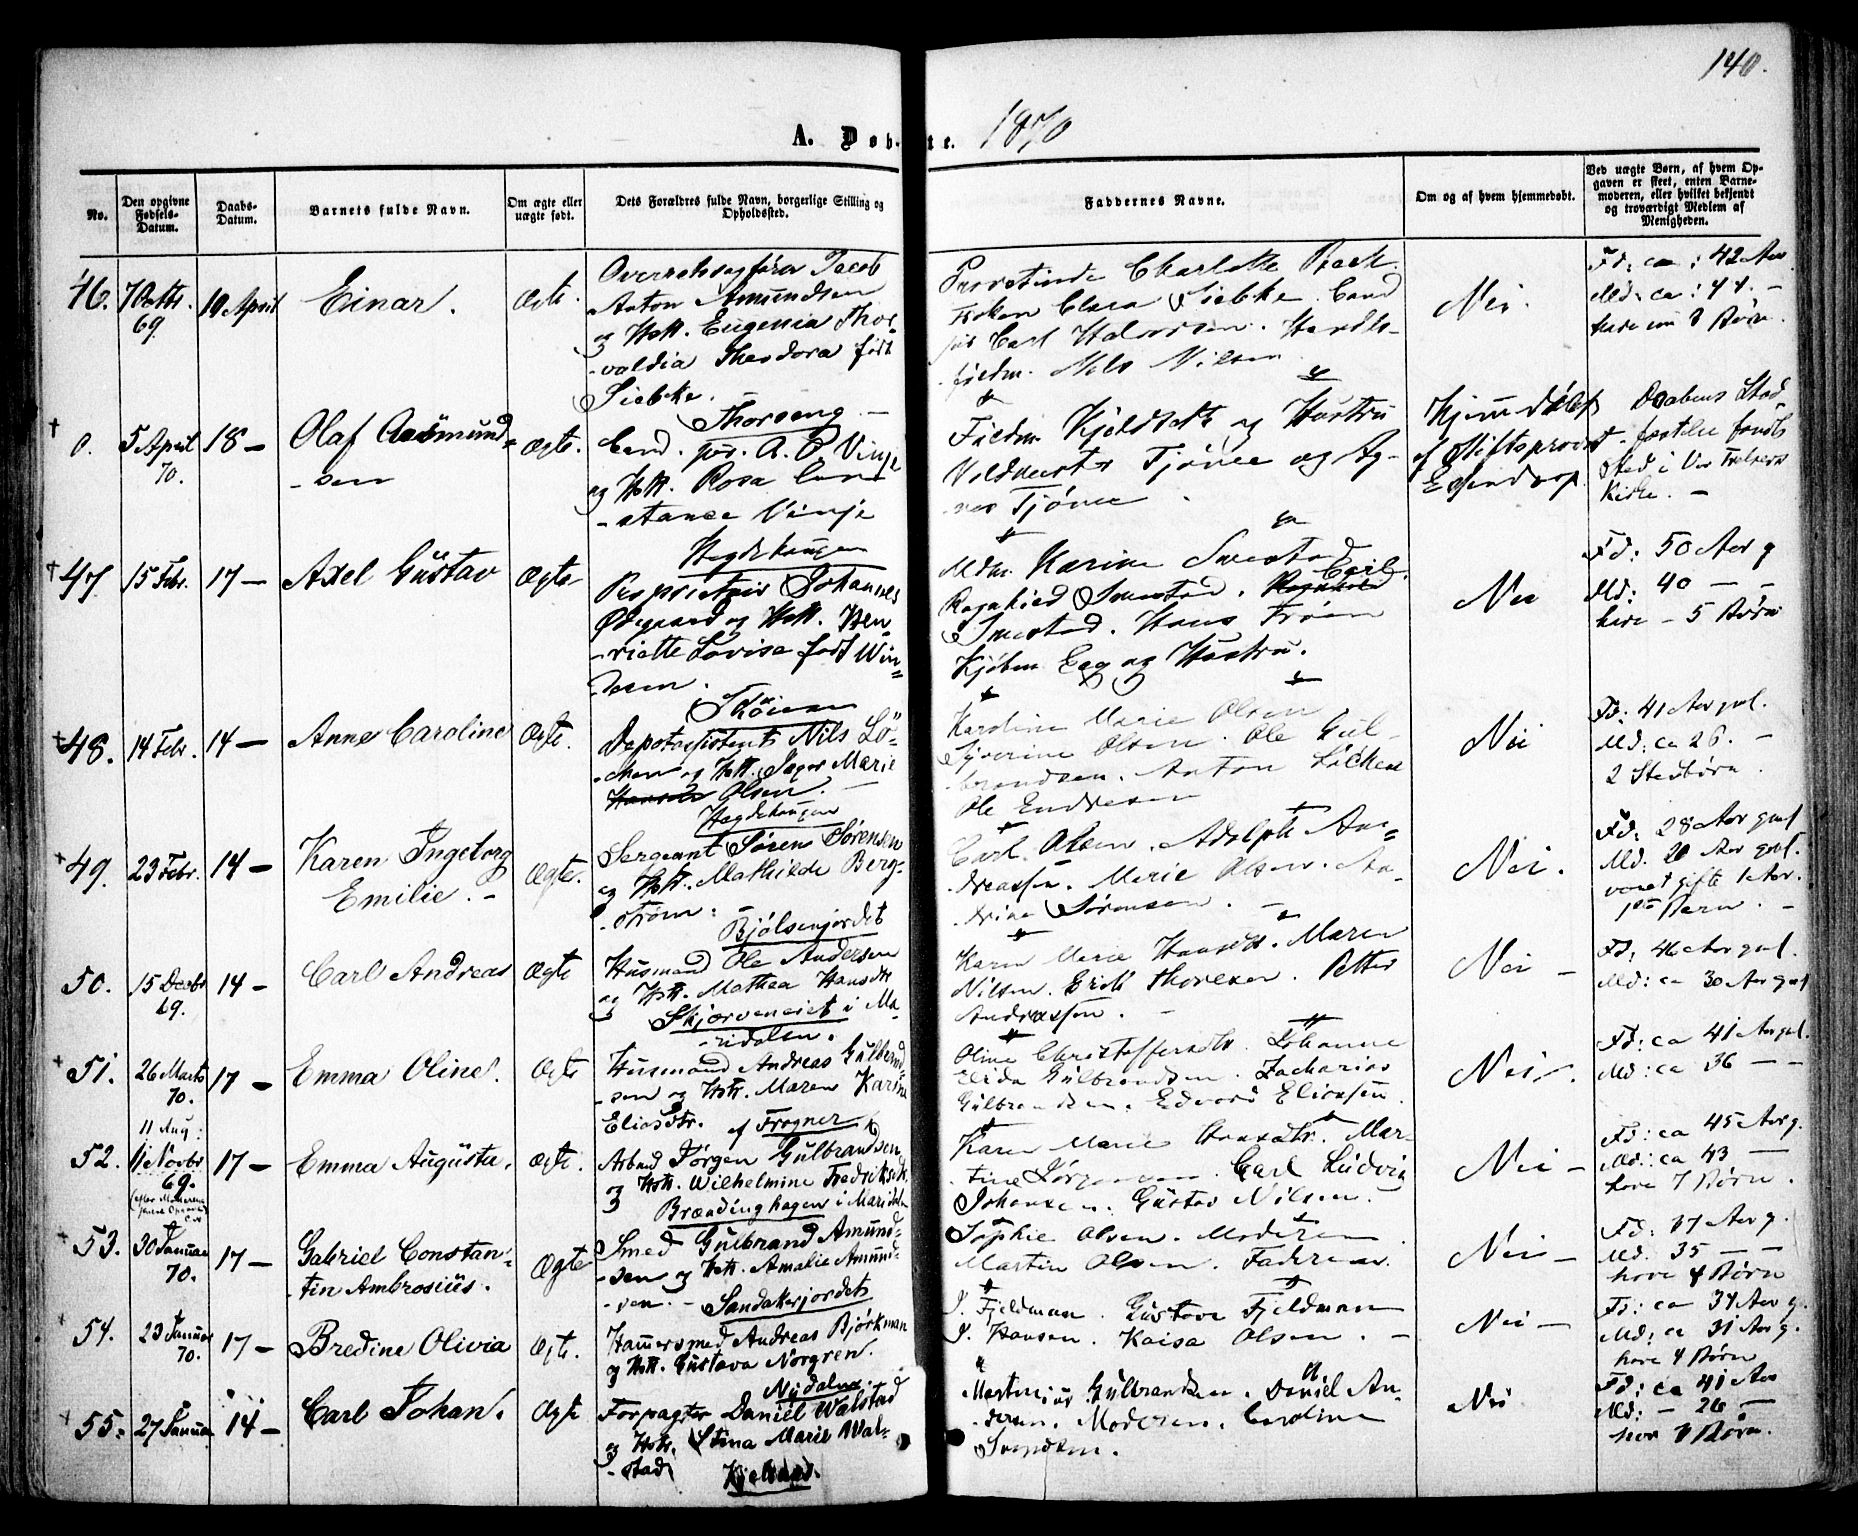 140.
A. Døbte. 1870
No.
Den opgivne Fødsels-Datum.
Daabs-Datum.
Barnets fulde Navn.
Om ægte eller uægte født.
Dets Forældres fulde Navn, borgerlige Stilling og Opholdssted.
Faddernes Navne.
Om og af hvem hjemmedøbt.
Ved uægte Børn, af hvem Opgaven er skeet, enten Barnemoderen, eller hvilket bekjendt og troværdigt Medlem af Menigheden.
46.
69.
10 April
Einar.
Ægte.
Overretssagfører Jacob
Anton Amundsen
og Hst. Eugenia Thor-
valdia Theodora født
Siebke.
Thorseng
Charlotte
Frøken Siebke. Cand
jur Carl Halvorsen. Handls-
fuldm. Nils Nilsen
Nei.
Fd: ca: 42 Aar
Md: ca: 44. -
have 8 Børn.
0.
5 April
70.
18 -
Olaf Aasmund-
sen
Ægte.
Cand. jur. A. O. Vinje
og Hst. Rosa Con-
stance Vinje
Fuldm. Kjeldseth og Hustru
Tjönee og Ag-
nes Tjönee
Hjemdøbt
af Stiftsprovst
Essendrop
Daabens Stad-
fæstelse fandt
Sted i Vor Frelsers
Kirke. -
47.
15 Febr.
17 -
Axel Gustav
Ægte
Hegdehaugen
Proprietair Johannes
Ødegaard og Hst. Hen-
riette Lovise født Win-
desen.
Mdm. Karine Smestad
Ragnhild Smestad. Carl
Smestad. Hans Frøen
Kjøbm. Eeg og Hustru.
Nei
Fd: 50 Aar g
Md: 40 - -
have - 5 Børn
48.
14 Febr.
14 -
Anne Caroline
Ægte.
Skøien
Depotassistent Nils Lö-
chen og Hst. Inger Marie
Olsen.
Karoline Marie Olsen
Syverine Olsen. Ole Gul-
brandsen. Anton Löchen
Ole Endresen
Nei
Fd: 41 Aar gml.
Md: ca 26. -
2 Stedbørn.
49.
23 Febr.
14 -
Karen Ingeborg
Emilie. -
Ægte.
Hegdehaugen
Sergeant Søren Sørensen
og Hst. Mathilde Berg-
strøm:
Carl Olsen. Adolph An-
dreassen. Marie Olsen. An-
drine Sørensen. -
Nei.
Fd: 28 Aar gml
Md. 20 Aar gml.
været gifte 1 Aar.
1ste Barn. -
50.
15 Decbr
69.
14 -
Carl Andreas
Ægte
Bjølsenjordet
Husmand Ole Andersen
og Hst. Mathea Hansdt.
Skjærveneiet i Ma-
ridalen.
Karen Marie Hansdt. Maren
Nilsen. Erik Thoresen. Petter
Andreassen. -
Nei -
Fd: 46 Aar gml.
Md: ca 30 Aar gml
51.
26 Marts
70.
17 -
Emma Oline.
Ægte
Husmand Andreas Gulbrand-
sen og Hst. Maren Karine
Eliasdtr. af Frogner
Oline Christoffersdtr. Johanne
Elida Gulbrandsen. Zacharias
Gulbrandsen. Edvard Eliassen
Nei.
Fd: ca 41 Aar gml.
Md: ca 36 - -
52.
11 Aug:
11 Novbr
69.
17 -
Emma Augusta.
Ægte.
Arbmd Jørgen Gulbrandsen
og Hst. Wilhelmine Fredriksdt
Brændinghagen i Maridalen
Karen Marie Hansdtr. Mar-
tine Jørgensen. Carl Ludvig
Johansen. Gustav Nilsen.
Nei -
Fd: ca 45 Aar g.
Md: ca 43 -
have 7 Børn.
53.
30 Januar
70.
17 -
Gabriel Constan-
tin Ambrosius.
Ægte
Smed Gulbrand Amund-
sen og Hst. Amalie Amund-
sen. - Sandakerjordet
Sophie Olsen. Moderen
Martin Olsen. Faderen.
Nei -
Fd: 37 Aar g.
Md. 35 - -
have 4 Børn
54.
23 Januar
70.
17 -
Bredine Olivia
Ægte.
Hammersmed Andreas Björkman
og Hst. Gustava Norgren.
Nydalen.
J. Fjeldman. Gustava Fjeldman
J. Hansen. Kaisa Olsen. -
Nei -
Fd: ca 34 Aar g.
Md: ca 31 Aar g.
have 4 Børn
55.
27 Januar
14 -
Carl Johan.
Ægte
Forpagter Daniel Walstad
og Hst. Stina Marie Wal-
stad
Martinius Gulbrandsen. Daniel An-
dersen. Moderen. Caroline
Svendsen.
Nei
Fd: ca 41 Aar
Md: - 26 -